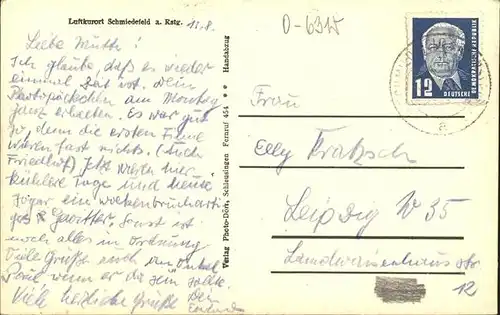 Luftkurort Schmiedefeld a. Rstg. 15.8.
Liebe Mutti!
Ich glaube daß es wieder
einmal Zeit ist. Dein
am Montag
ganz erhalten. Es war gut
so, denn die ersten
waren fast nichts. (Auch
Friedhof) Jetzt waren hier
kühlere Tage und heute
sogar ein wolkenbruchartiges
Gewitter. Sonst ist
noch alles in Ordnung
Viele Grüße auch an Onkel
Paul wenn er da sein sollte.
Viele herzliche Grüße Dein
Verlag Photo-Dörr, Schleusingen Fernruf 454 * * Handabzug
D-6312
12
DEUTSCHE
DEMOKRATISCHE REPUBLIK
a
Frau
Elly Fratzsch
Leipzig W 35
Landwaisenhausstr
12